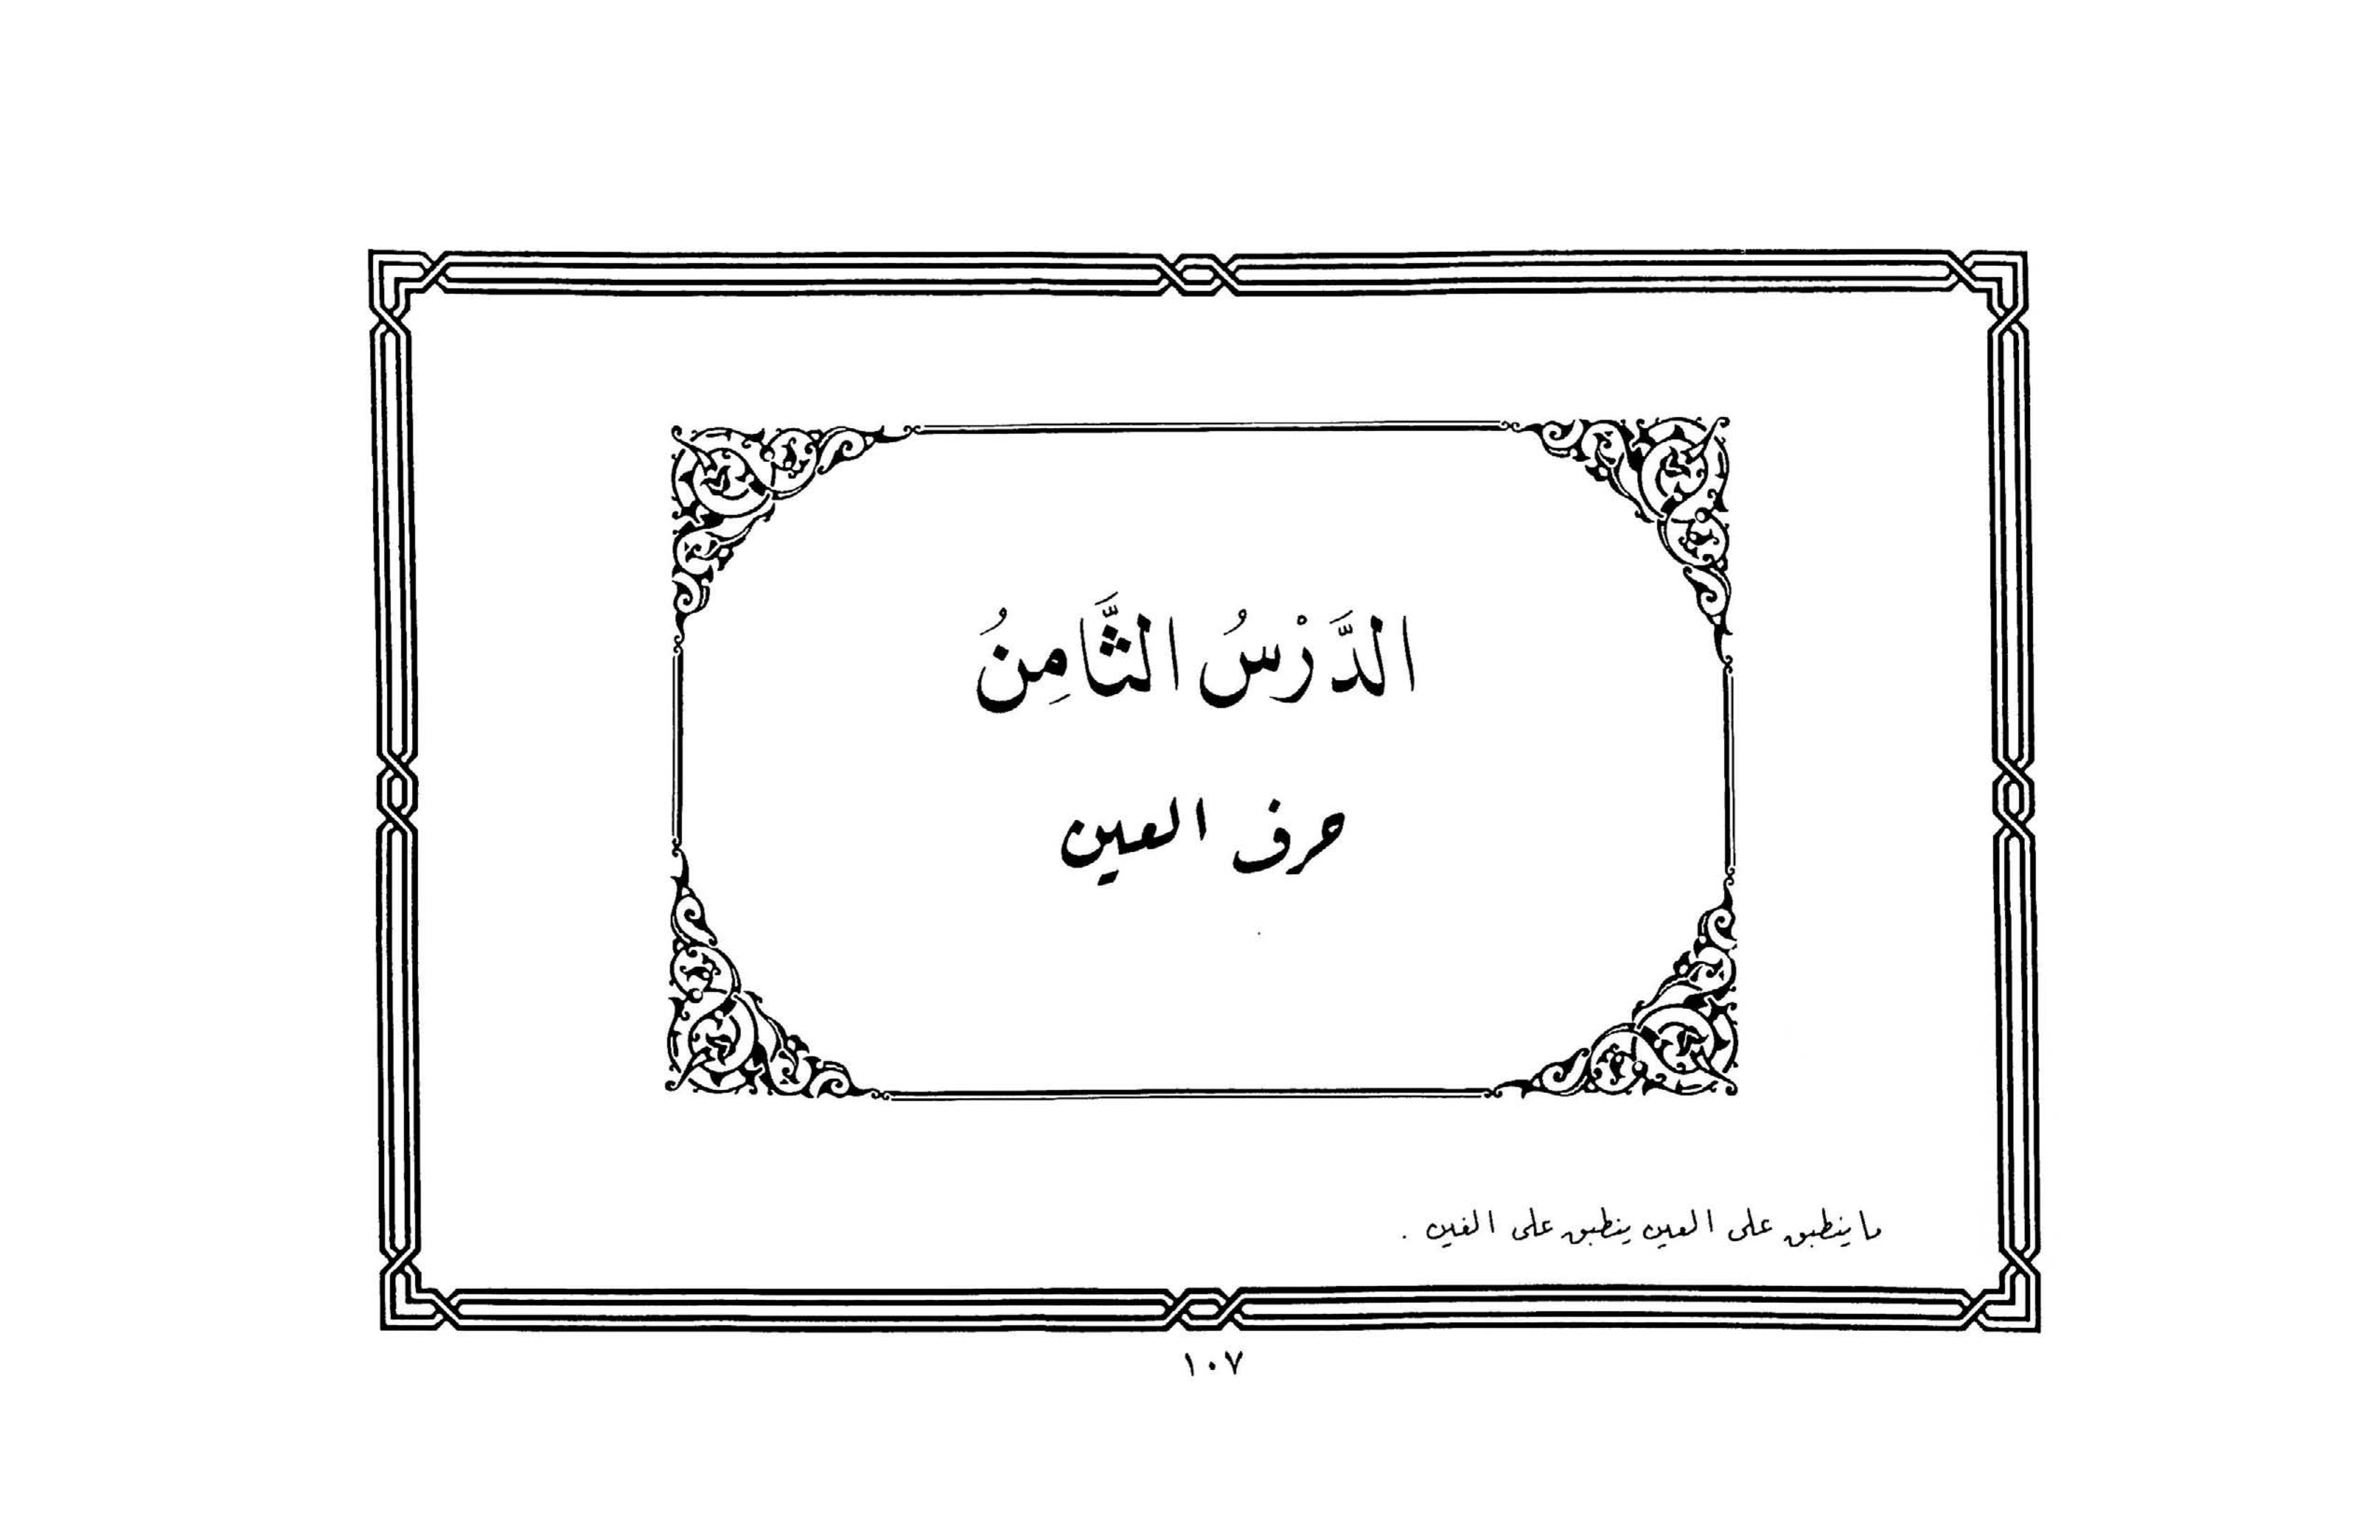 الدَّرْسُ الثَّامِنُ
حرف العين
ما ينطبق على العين ينطبق على الغين .
١٠٧